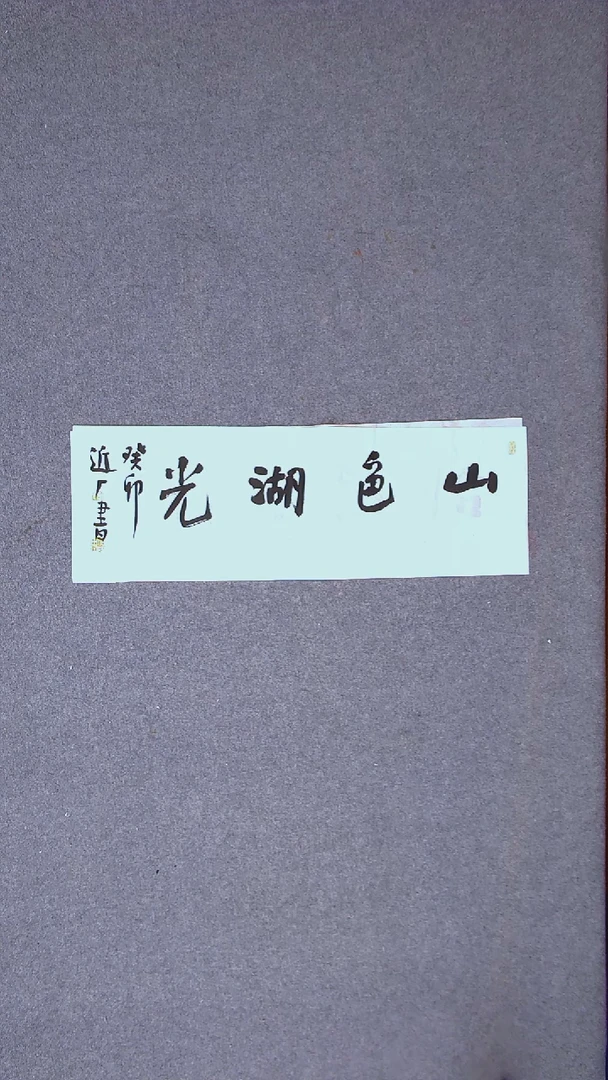 山色湖光
癸卯
近厂書